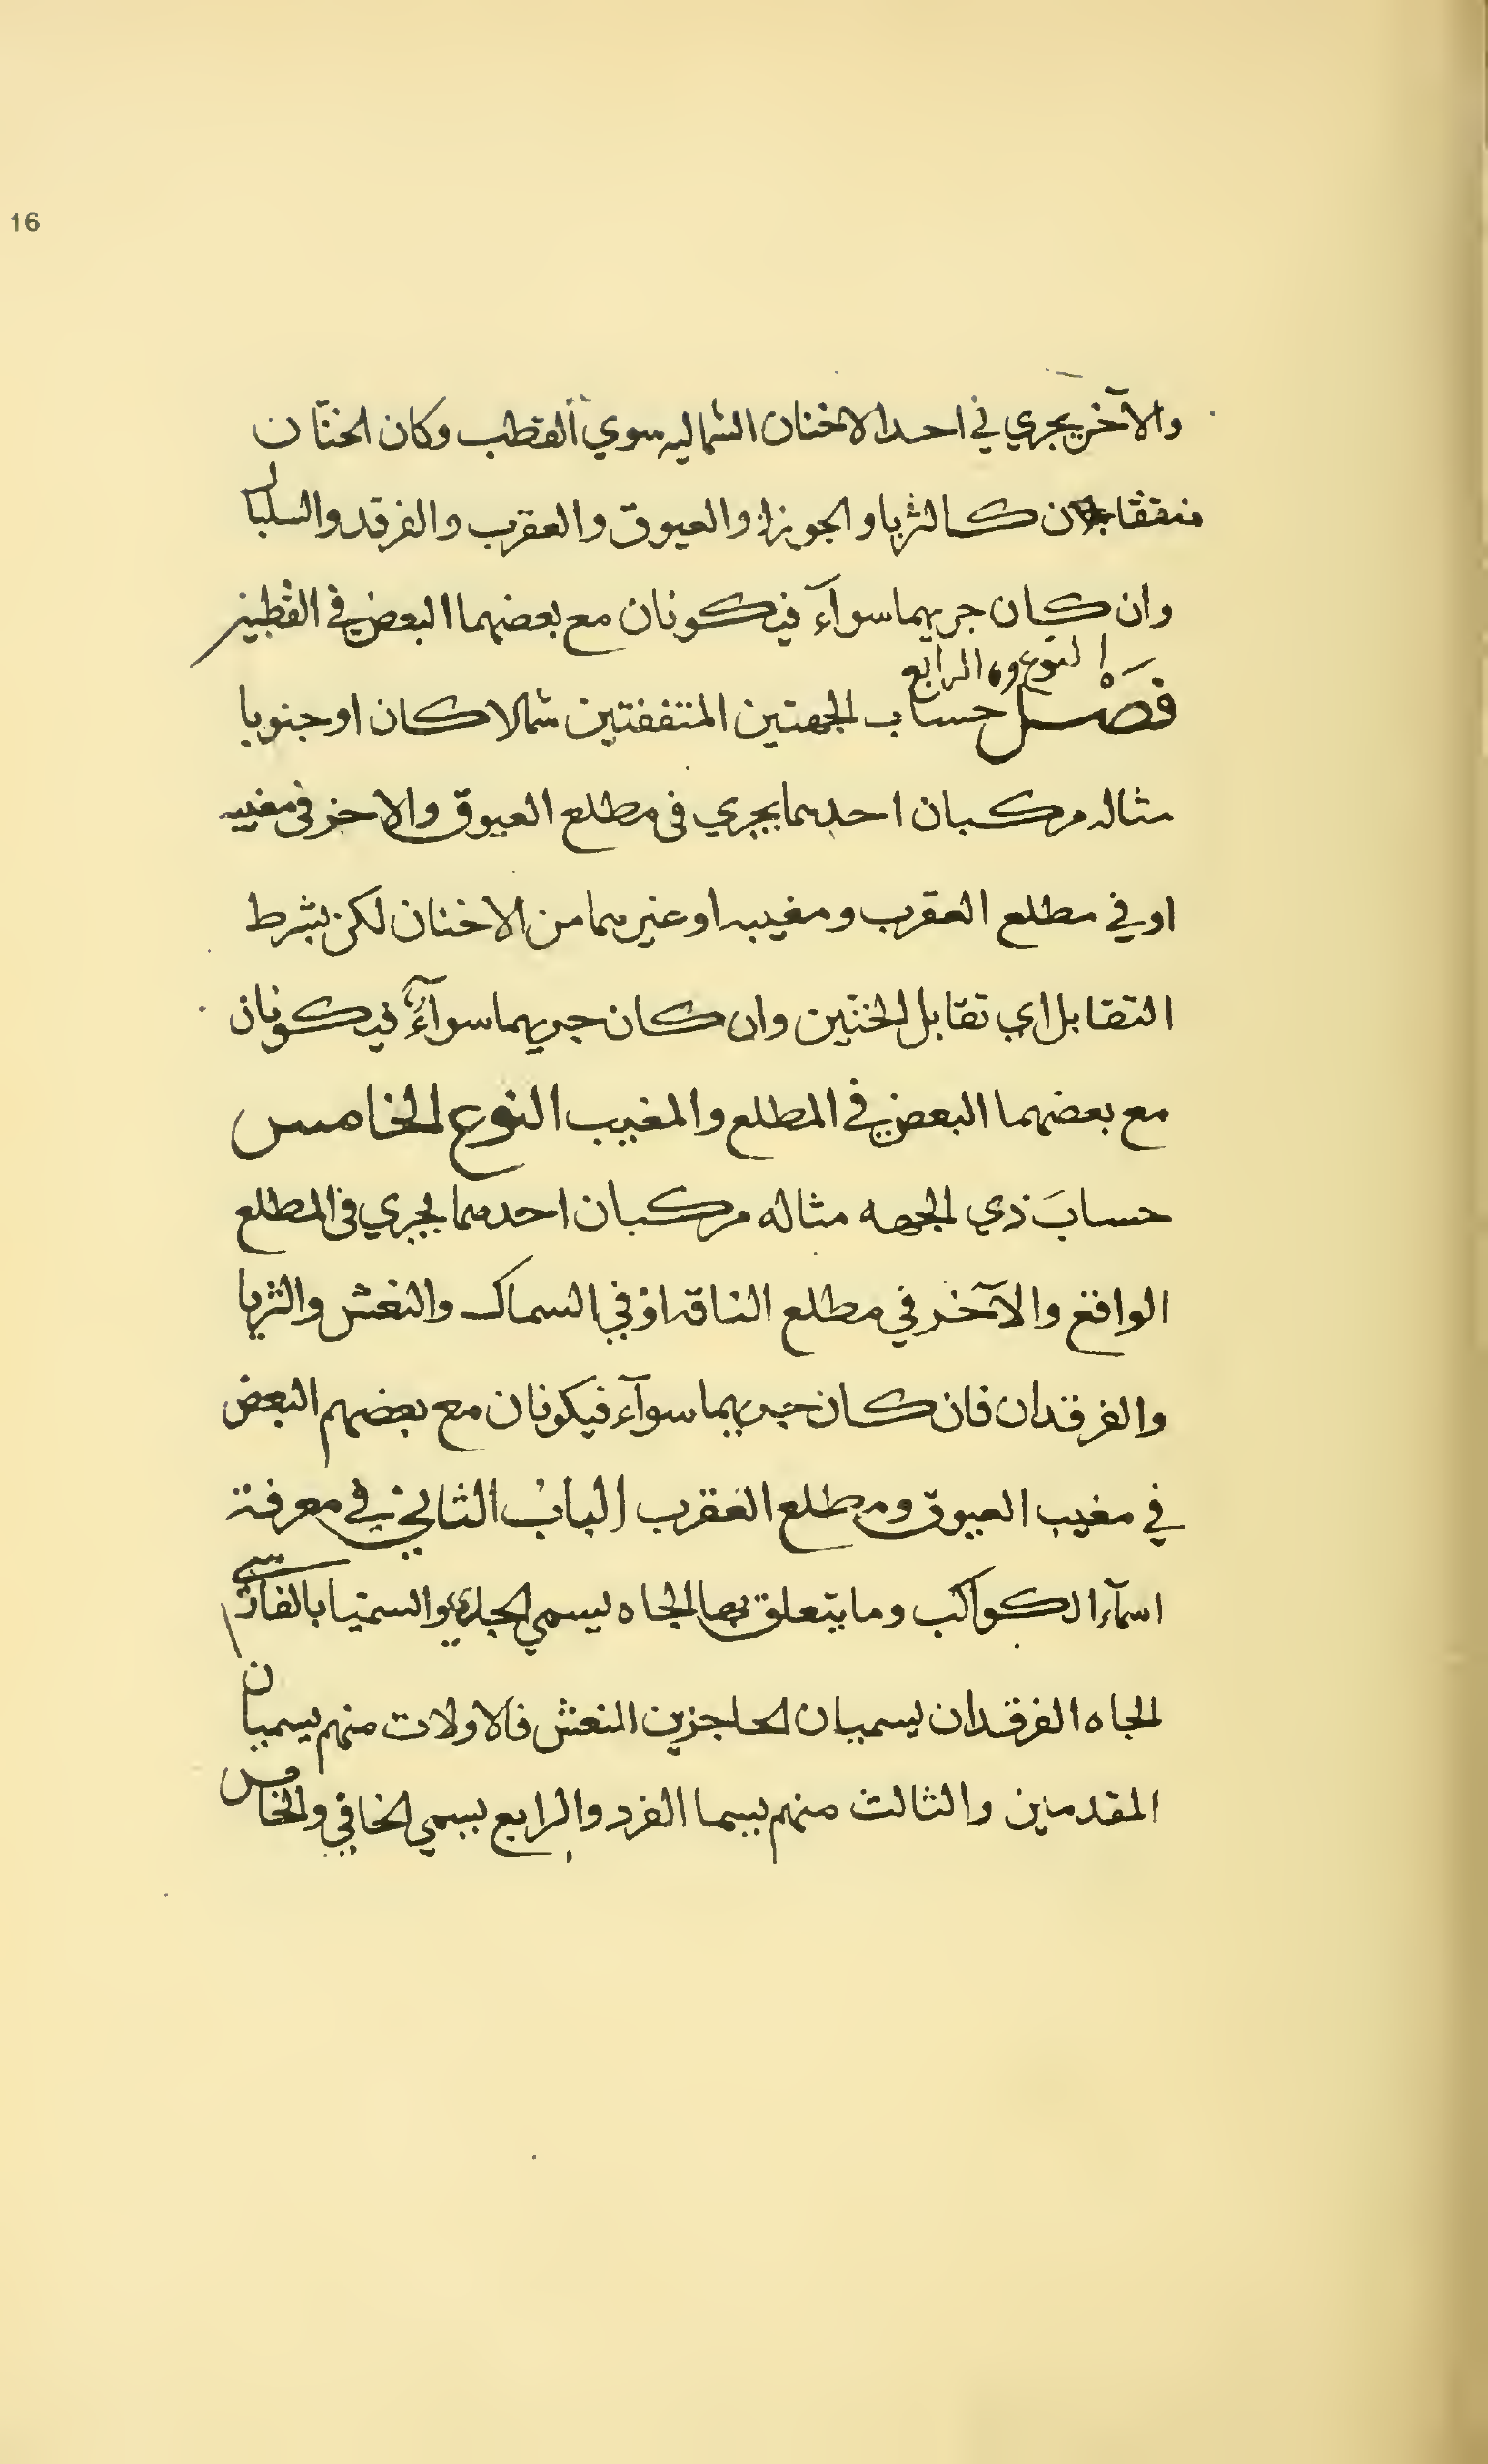 16
والآخر يجري في احد الاخنان الشماليه سوي القطب وكان الخنّان
متفقان كالثريا والجوزا والعيوق والعقرب والفرقد والسلبار
وان كان جريهما سوآء فيكونان مع بعضهما البعض في القطبين
النوع الرابع
فصل حساب الجهتين المتفقتين شمالا كان او جنوبا
مثاله مركبان احدهما يجري في مطلع العيوق والاخر في مغيبه
او في مطلع العقرب ومغيبه او غيرهما من الاخنان لكن بشرط
التقابل اي تقابل الخنّين وان كان جريهما سوآء فيكونان
مع بعضهما البعض في المطلع والمغيب النوع الخامس
حسابَ ذي الجهه مثاله مركبان احدهما يجري في المطلع
الواقع والآخر في مطلع الناقه او في السماك والنعش والثريا
والفرقدان فان كان جريهما سوآء فيكونان مع بعضهم البعض
في مغيب العيوق ومطلع العقرب الباب الثاني في معرفة
اسمآء الكواكب وما يتعلق بها الجاه يسمي الجدي والسميّا بالفارسي
الجاه الفرقدان يسميان الحاجزين النعش فالاولات منهم يسميان
المقدمين والثالث منهم يسما الفرد والرابع يسمي الخافي والخامس